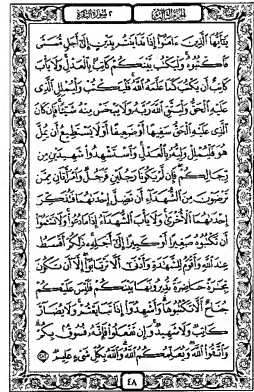 الجزء الثالث ٣ سورة البقرة ٢
يَٰٓأَيُّهَا ٱلَّذِينَ ءَامَنُوٓا۟ إِذَا تَدَايَنتُم بِدَيْنٍ إِلَىٰٓ أَجَلٍ مُّسَمًّى
فَٱكْتُبُوهُ وَلْيَكْتُب بَّيْنَكُمْ كَاتِبٌۢ بِٱلْعَدْلِ وَلَا يَأْبَ
كَاتِبٌ أَن يَكْتُبَ كَمَا عَلَّمَهُ ٱللَّهُ فَلْيَكْتُبْ وَلْيُمْلِلِ ٱلَّذِى
عَلَيْهِ ٱلْحَقُّ وَلْيَتَّقِ ٱللَّهَ رَبَّهُۥ وَلَا يَبْخَسْ مِنْهُ شَيْـًٔا فَإِن كَانَ
ٱلَّذِى عَلَيْهِ ٱلْحَقُّ سَفِيهًا أَوْ ضَعِيفًا أَوْ لَا يَسْتَطِيعُ أَن يُمِلَّ
هُوَ فَلْيُمْلِلْ وَلِيُّهُۥ بِٱلْعَدْلِ وَٱسْتَشْهِدُوا۟ شَهِيدَيْنِ مِن
رِّجَالِكُمْ فَإِن لَّمْ يَكُونَا رَجُلَيْنِ فَرَجُلٌ وَٱمْرَأَتَانِ مِمَّن
تَرْضَوْنَ مِنَ ٱلشُّهَدَآءِ أَن تَضِلَّ إِحْدَىٰهُمَا فَتُذَكِّرَ
إِحْدَىٰهُمَا ٱلْأُخْرَىٰ وَلَا يَأْبَ ٱلشُّهَدَآءُ إِذَا مَا دُعُوا۟ وَلَا تَسْـَٔمُوٓا۟
أَن تَكْتُبُوهُ صَغِيرًا أَوْ كَبِيرًا إِلَىٰٓ أَجَلِهِۦ ذَٰلِكُمْ أَقْسَطُ
عِندَ ٱللَّهِ وَأَقْوَمُ لِلشَّهَٰدَةِ وَأَدْنَىٰٓ أَلَّا تَرْتَابُوٓا۟ إِلَّآ أَن تَكُونَ
تِجَٰرَةً حَاضِرَةً تُدِيرُونَهَا بَيْنَكُمْ فَلَيْسَ عَلَيْكُمْ
جُنَاحٌ أَلَّا تَكْتُبُوهَا وَأَشْهِدُوٓا۟ إِذَا تَبَايَعْتُمْ وَلَا يُضَآرَّ
كَاتِبٌ وَلَا شَهِيدٌ وَإِن تَفْعَلُوا۟ فَإِنَّهُۥ فُسُوقٌۢ بِكُمْ
وَٱتَّقُوا۟ ٱللَّهَ وَيُعَلِّمُكُمُ ٱللَّهُ وَٱللَّهُ بِكُلِّ شَىْءٍ عَلِيمٌ ٢٨٢
٤٨